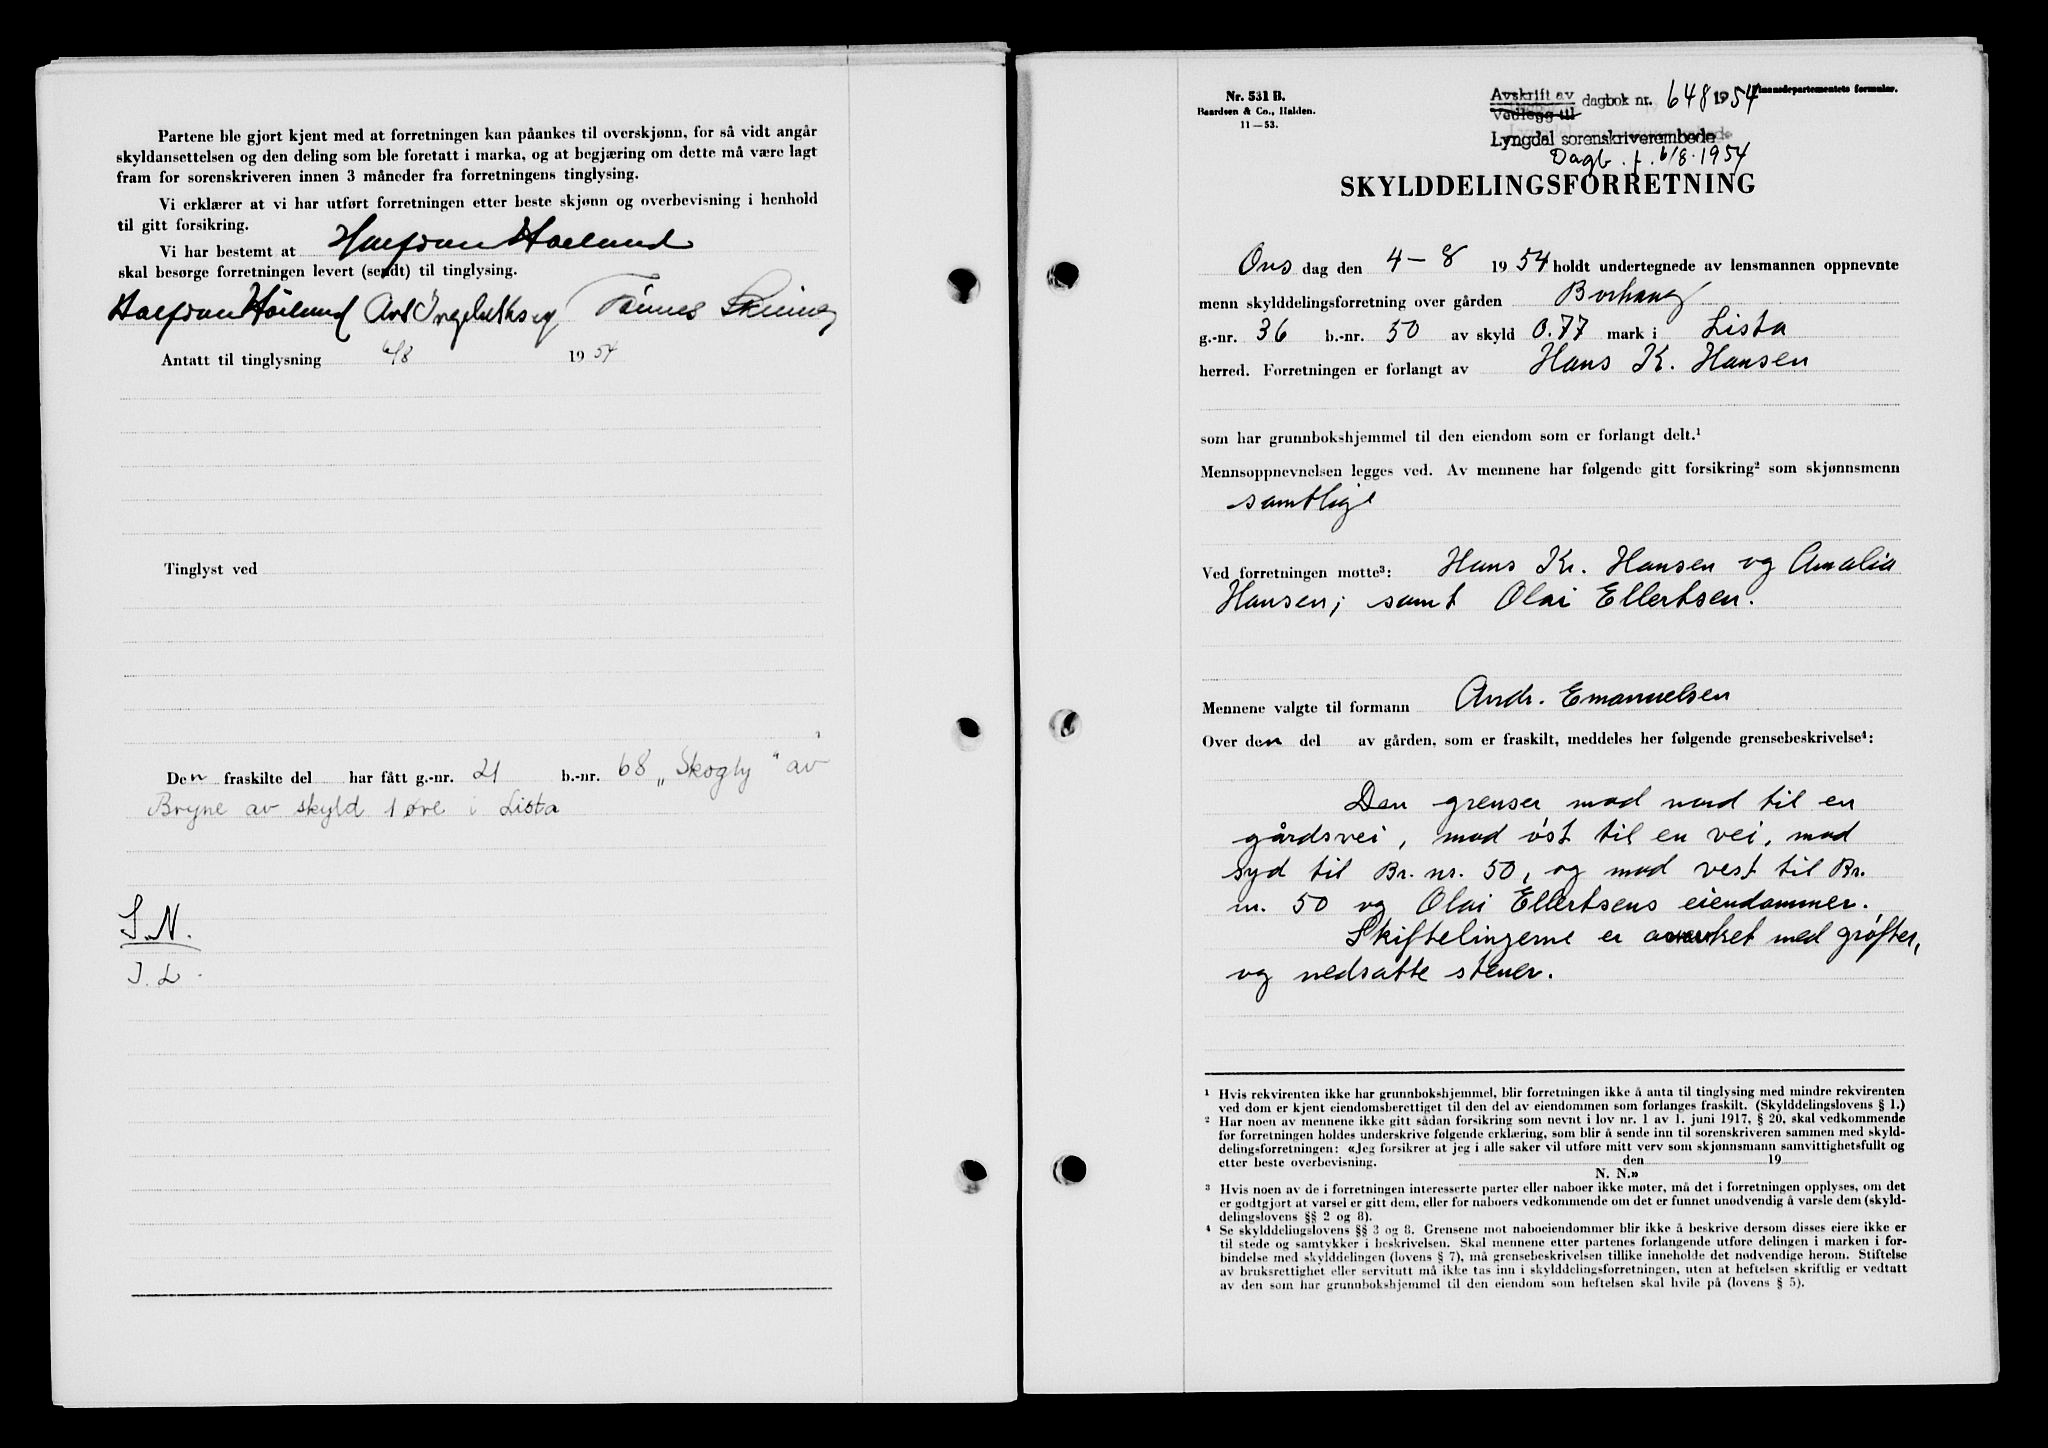 Partene ble gjort kjent med at forretningen kan påankes til overskjønn, for så vidt angår
skyldansettelsen og den deling som ble foretatt i marka, og at begjæring om dette må være lagt
fram for sorenskriveren innen 3 måneder fra forretningens tinglysing.
Vi erklærer at vi har utført forretningen etter beste skjønn og overbevisning i henhold
til gitt forsikring.
Vi har bestemt at Halfdan Hæland
skal besørge forretningen levert (sendt) til tinglysing.
Halfdan Tønnes
Antatt til tinglysning 6/8 1954
Tinglyst ved
Den fraskilte del har fått g.-nr. 21 b.-nr. 68 „Skogly" av
Bryne av skyld 1 øre i Lista
S.N.
J.L.
Nr. 531 B.
Baardsen & Co., Halden.
11—53.
Avskrift av
Vedlegg til
dagbok nr. 648 1954 Finansdepartementets formular.
Lyngdal sorenskriverembede
Dagb. f. 6/8. 1954
SKYLDDELINGSFORRETNING
Ons dag den 4-8 1954 holdt undertegnede av lensmannen oppnevnte
menn skylddelingsforretning over gården Borhaug
g.-nr. 36 b.-nr. 50 av skyld 0.77 mark i Lista
herred. Forretningen er forlangt av Hans K. Hansen
som har grunnbokshjemmel til den eiendom som er forlangt delt.¹
Mennsoppnevnelsen legges ved. Av mennene har følgende gitt forsikring² som skjønnsmenn
samtlige
Ved forretningen møtte³: Hans Kr. Hansen og Amalia
Hansen; samt Olai Ellertsen.
Mennene valgte til formann Andr. Emanuelsen
Over den del av gården, som er fraskilt, meddeles her følgende grensebeskrivelse⁴:
Den grenser mod nord til en
gårdsvei, mod øst til en vei, mod
syd til Br. nr. 50, og mod vest til Br.
nr. 50 og Olai Ellertsens eiendommer.
Skiftelingerne er avmerket med grøfter,
og nedsatte stener.
¹ Hvis rekvirenten ikke har grunnbokshjemmel, blir forretningen ikke å anta til tinglysing med mindre rekvirenten
ved dom er kjent eiendomsberettiget til den del av eiendommen som forlanges fraskilt. (Skylddelingslovens § 1.)
² Har noen av mennene ikke gitt sådan forsikring som nevnt i lov nr. 1 av 1. juni 1917, § 20, skal vedkommende
før forretningen holdes underskrive følgende erklæring, som blir å sende inn til sorenskriveren sammen med skyld-
delingsforretningen: «Jeg forsikrer at jeg i alle saker vil utføre mitt verv som skjønnsmann samvittighetsfullt og
etter beste overbevisning. den 19
N. N.»
³ Hvis noen av de i forretningen interesserte parter eller naboer ikke møter, må det i forretningen opplyses, om det
er godtgjort at varsel er gitt dem, eller for naboers vedkommende om det er funnet unødvendig å varsle dem (skyld-
delingslovens §§ 2 og 8).
⁴ Se skylddelingslovens §§ 3 og 8. Grensene mot naboeiendommer blir ikke å beskrive dersom disses eiere ikke er
til stede og samtykker i beskrivelsen. Skal mennene etter partenes forlangende utføre delingen i marken i for-
bindelse med skylddelingen (lovens § 7), må grensebeskrivelsen tillike inneholde det nødvendige herom. Stiftelse
av bruksrettighet eller servitutt må ikke tas inn i skylddelingsforretningen, uten at heftelsen skriftlig er vedtatt
av den som har grunnbokshjemmel til den eiendom som heftelsen skal hvile på (lovens § 5).